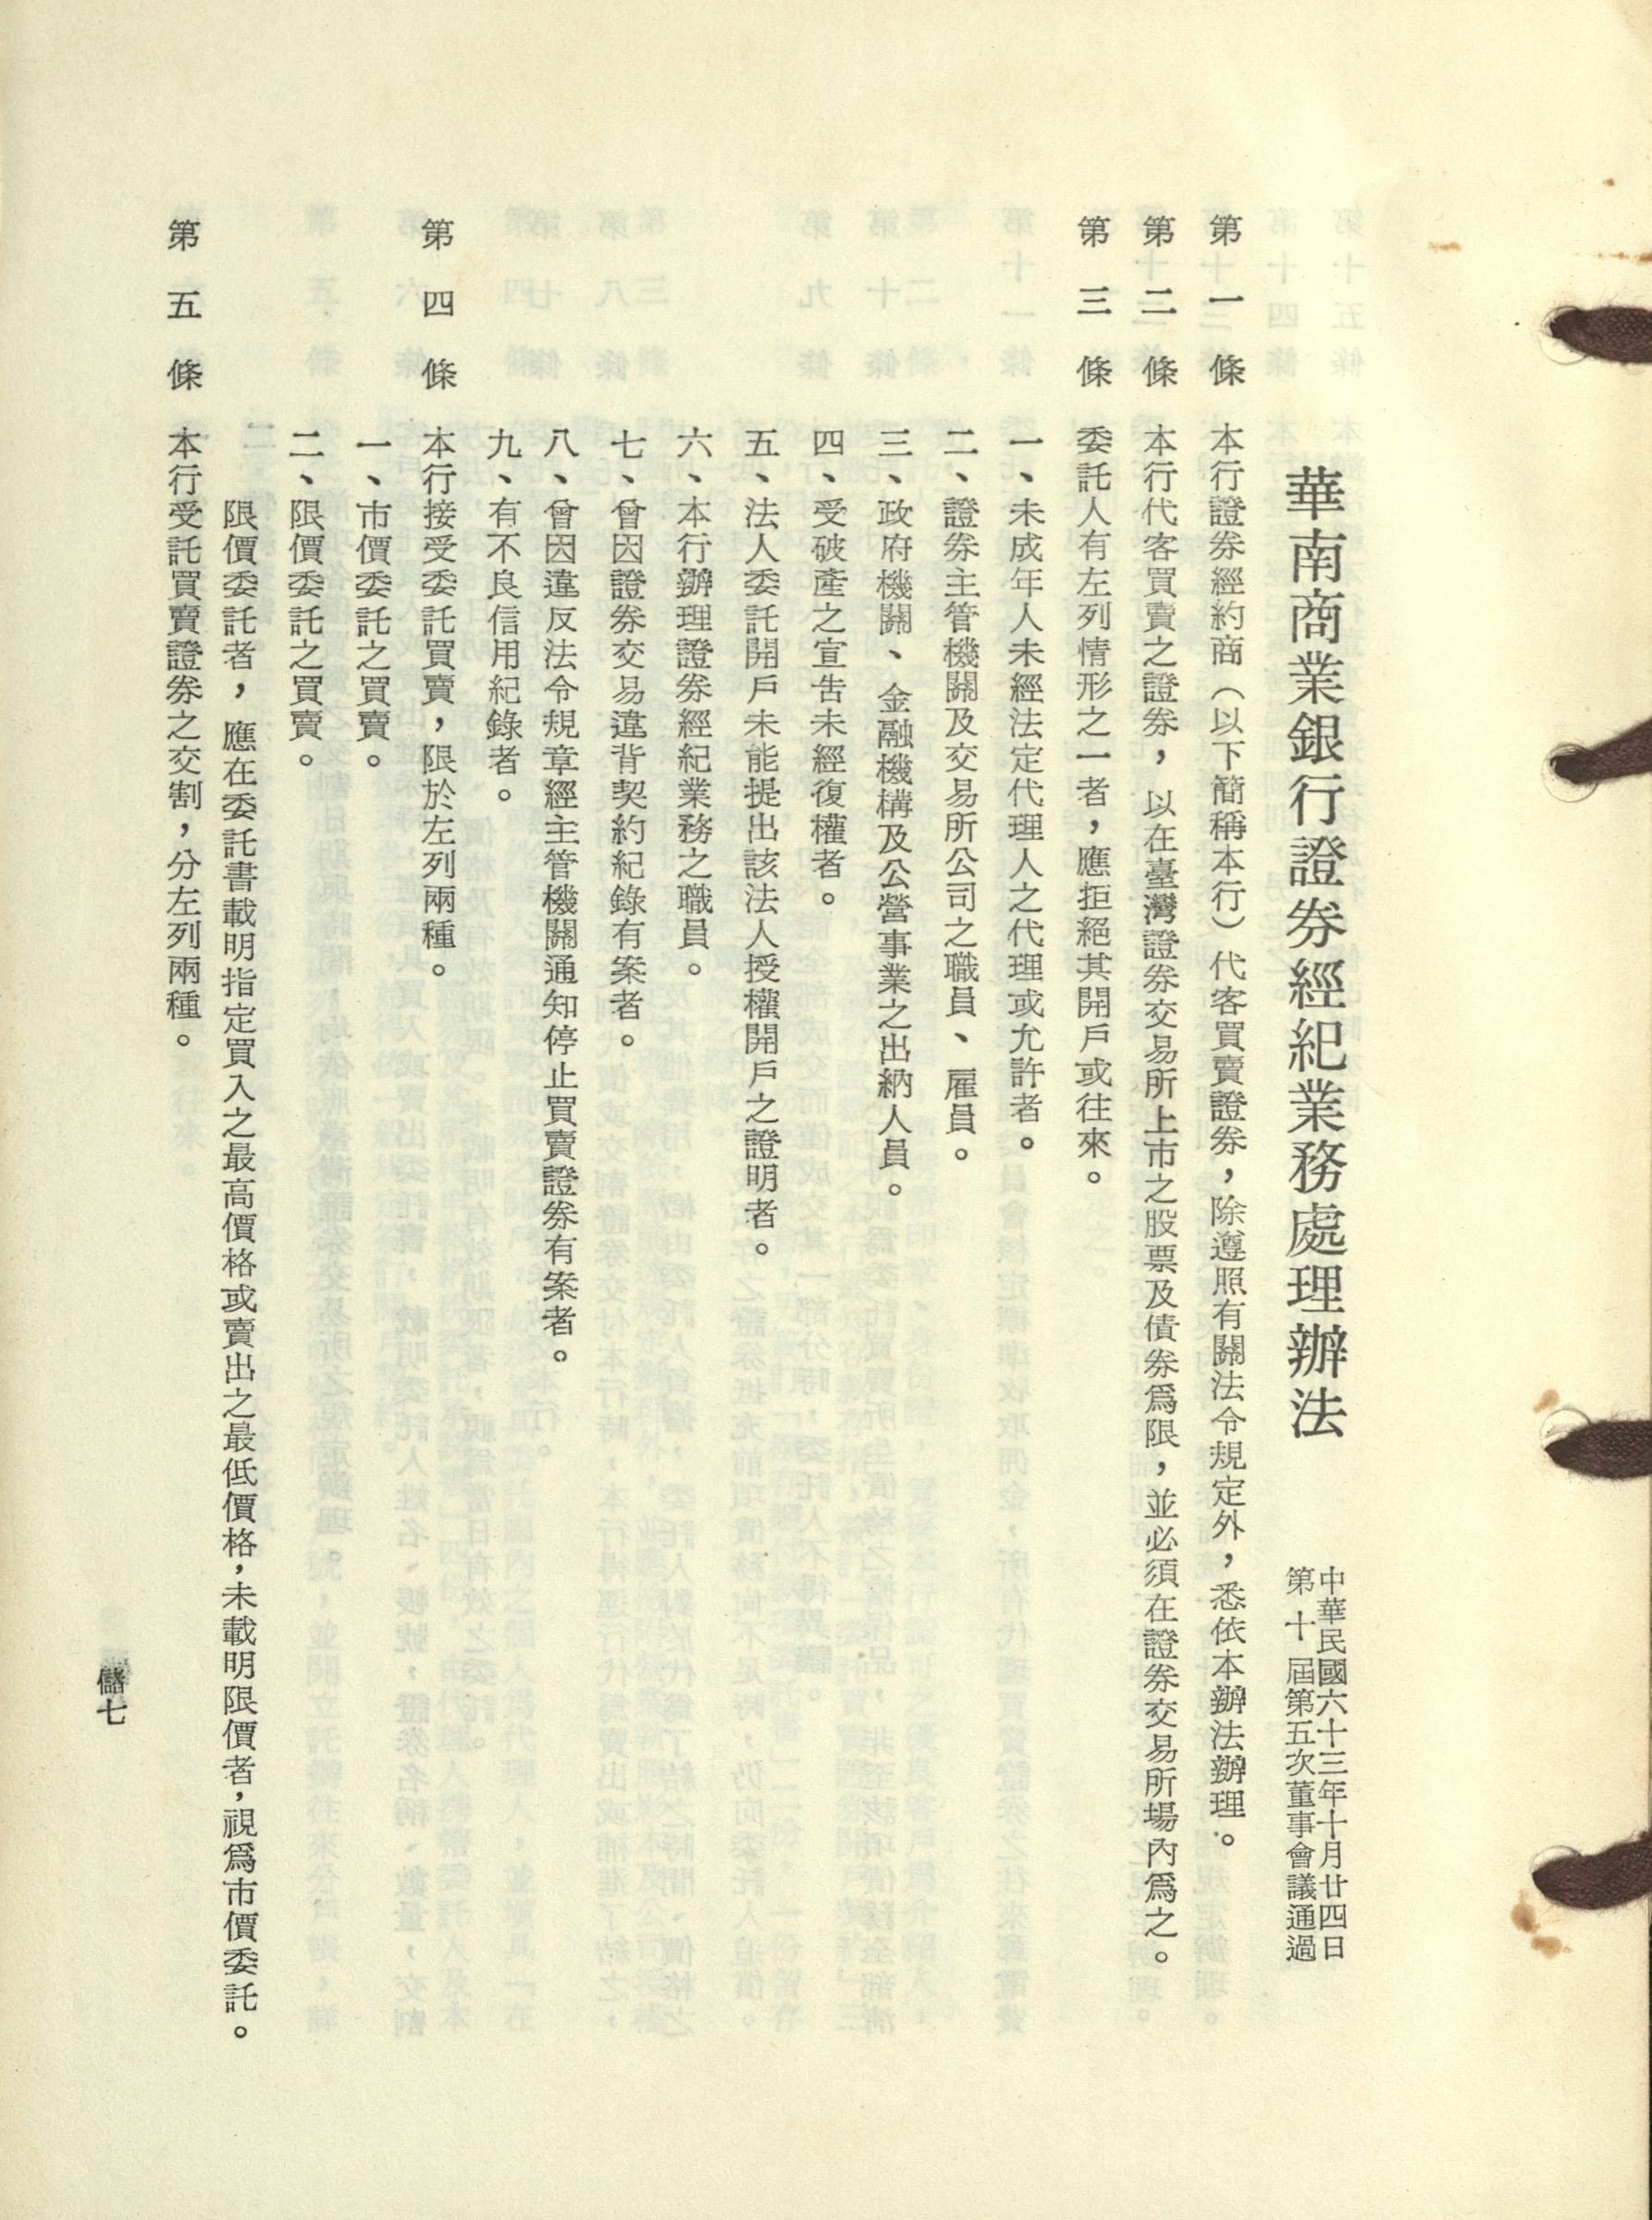 華南商業銀行證券經紀業務處理辦法
中華民國六十三年十月廿四日
第十屆第五次董事會議通過
第一條 本行證券經約商（以下簡稱本行）代客買賣證券，除遵照有關法令規定外，悉依本辦法辦理。
第二條 本行代客買賣之證券，以在臺灣證券交易所上市之股票及債券爲限，並必須在證券交易所場內爲之。
第三條 委託人有左列情形之一者，應拒絕其開戶或往來。
一、未成年人未經法定代理人之代理或允許者。
二、證券主管機關及交易所公司之職員、雇員。
三、政府機關、金融機構及公營事業之出納人員。
四、受破產之宣告未經復權者。
五、法人委託開戶未能提出該法人授權開戶之證明者。
六、本行辦理證券經紀業務之職員。
七、曾因證券交易違背契約紀錄有案者。
八、曾因違反法令規章經主管機關通知停止買賣證券有案者。
九、有不良信用紀錄者。
第四條 本行接受委託買賣，限於左列兩種。
一、市價委託之買賣。
二、限價委託之買賣。
限價委託者，應在委託書載明指定買入之最高價格或賣出之最低價格，未載明限價者，視爲市價委託。
第五條 本行受託買賣證券之交割，分左列兩種。
儲七